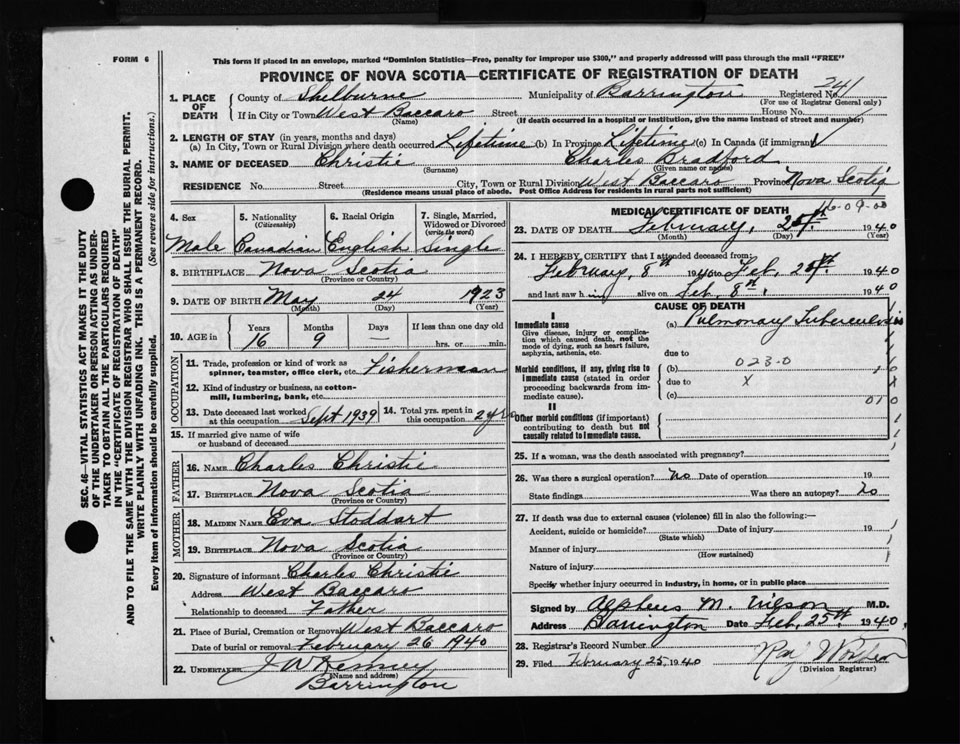 FORM 6
This form if placed in an envelope, marked "Dominion Statistics—Free, penalty for improper use $300," and properly addressed will pass through the mail "FREE"
PROVINCE OF NOVA SCOTIA—CERTIFICATE OF REGISTRATION OF DEATH
241
1. PLACE OF DEATH County of Shelburne Municipality of Barrington Registered No.
(For use of Registrar General only)
If in City or Town West Baccaro Street House No.
(Name) (If death occurred in a hospital or institution, give the name instead of street and number)
2. LENGTH OF STAY (in years, months and days)
(a) In City, Town or Rural Division where death occurred Lifetime (b) In Province Lifetime (c) In Canada (if immigrant)
3. NAME OF DECEASED Christie Charles Bradford
(Surname) (Given name or names)
RESIDENCE No. Street City, Town or Rural Division West Baccaro Province Nova Scotia
(Residence means usual place of abode. Post Office Address for residents in rural parts not sufficient)
4. Sex 5. Nationality (Citizenship) 6. Racial Origin 7. Single, Married, Widowed or Divorced (write the word)
Male Canadian English Single
8. BIRTHPLACE Nova Scotia
(Province or Country)
9. DATE OF BIRTH May 24 1923
(Month) (Day) (Year)
10. AGE in Years Months Days If less than one day old
16 9 — hrs. or min.
OCCUPATION
11. Trade, profession or kind of work as spinner, teamster, office clerk, etc. Fisherman
12. Kind of industry or business, as cotton-mill, lumbering, bank, etc.
13. Date deceased last worked at this occupation Sept 1939 14. Total yrs. spent in this occupation 2 yrs
15. If married give name of wife or husband of deceased
FATHER
16. NAME Charles Christie
17. BIRTHPLACE Nova Scotia
(Province or Country)
MOTHER
18. MAIDEN NAME Eva Stoddart
19. BIRTHPLACE Nova Scotia
(Province or Country)
20. Signature of informant Charles Christie
Address West Baccaro
Relationship to deceased Father
21. Place of Burial, Cremation or Removal West Baccaro
Date of burial or removal February 26 1940
22. UNDERTAKER J W Kenney
(Name and address)
Barrington
MEDICAL CERTIFICATE OF DEATH
23. DATE OF DEATH February, 25th 1940
(Month) (Day) (Year)
24. I HEREBY CERTIFY that I attended deceased from:
February, 8th 1940 to Feb. 25th 1940
and last saw him alive on Feb. 8th, 1940
CAUSE OF DEATH
I
Immediate cause
Give disease, injury or complication which caused death, not the mode of dying, such as heart failure, asphyxia, asthenia, etc.
(a) Pulmonary Tuberculosis
due to
023-0
Morbid conditions, if any, giving rise to immediate cause (stated in order proceeding backwards from immediate cause).
(b)
due to X
(c)
II
Other morbid conditions (if important) contributing to death but not causally related to immediate cause.
25. If a woman, was the death associated with pregnancy?
26. Was there a surgical operation? No Date of operation 19
State findings Was there an autopsy? No
27. If death was due to external causes (violence) fill in also the following:—
Accident, suicide or homicide? Date of injury 19
(State which)
Manner of injury
(How sustained)
Nature of injury
Specify whether injury occurred in industry, in home, or in public place
Signed by Alpheus M. Wilson M.D.
Address Barrington Date Feb. 25th. 1940
28. Registrar's Record Number
29. Filed February 25, 1940
(Division Registrar)
SEC. 46—VITAL STATISTICS ACT MAKES IT THE DUTY
OF THE UNDERTAKER OR PERSON ACTING AS UNDER-
TAKER TO OBTAIN ALL THE PARTICULARS REQUIRED
IN THE "CERTIFICATE OF REGISTRATION OF DEATH"
AND TO FILE THE SAME WITH THE DIVISION REGISTRAR WHO SHALL ISSUE THE BURIAL PERMIT.
WRITE PLAINLY WITH UNFADING INK. THIS IS A PERMANENT RECORD.
Every item of Information should be carefully supplied. (See reverse side for instructions.)